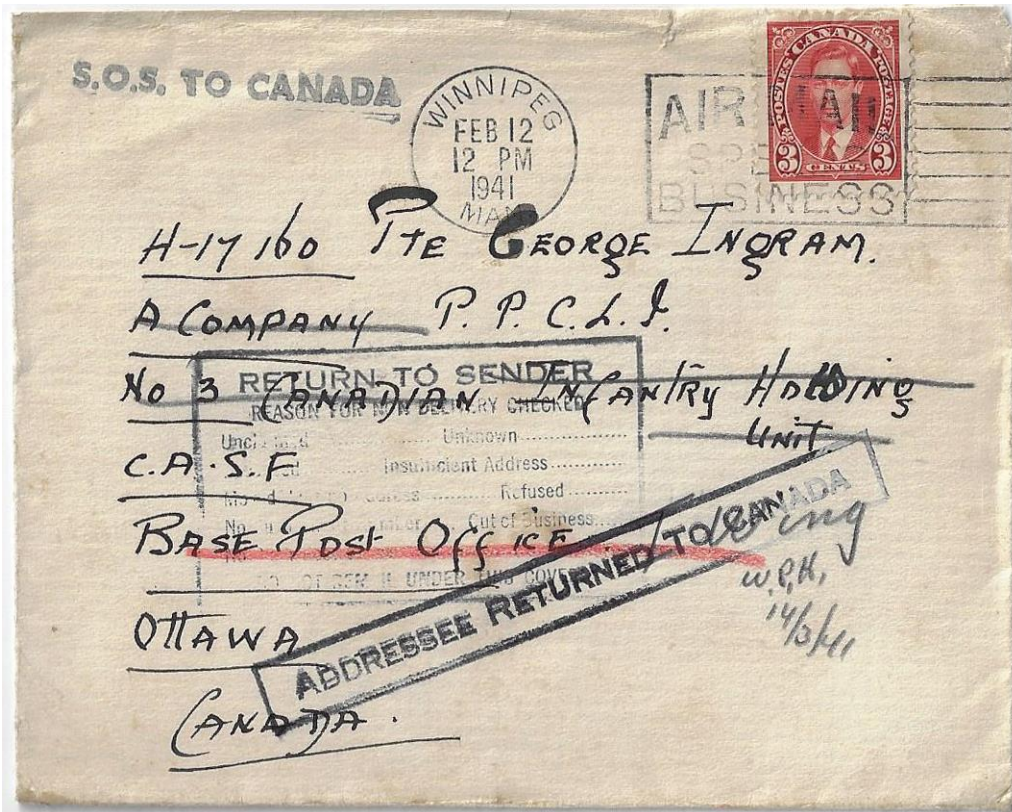 S.O.S. TO CANADA
WINNIPEG
FEB 12
12 PM
1941
MAN
AIR MAIL
SPEEDS
BUSINESS
POSTES CANADA POSTAGE
3 CENTS 3
H-17160 Pte GEORGE INGRAM.
A COMPANY P. P. C. L. I.
No 3 CANADIAN INFANTRY HOLDING
UNIT
C.A.S.F
BASE POST OFFICE
OTTAWA
CANADA.
RETURN TO SENDER
REASON FOR NON DELIVERY CHECKED
Unclaimed Unknown
Insufficient Address
Refused
Out of Business
DO NOT REMAIL UNDER THIS COVER
ADDRESSEE RETURNED TO CANADA
W.P.H.
14/3/41